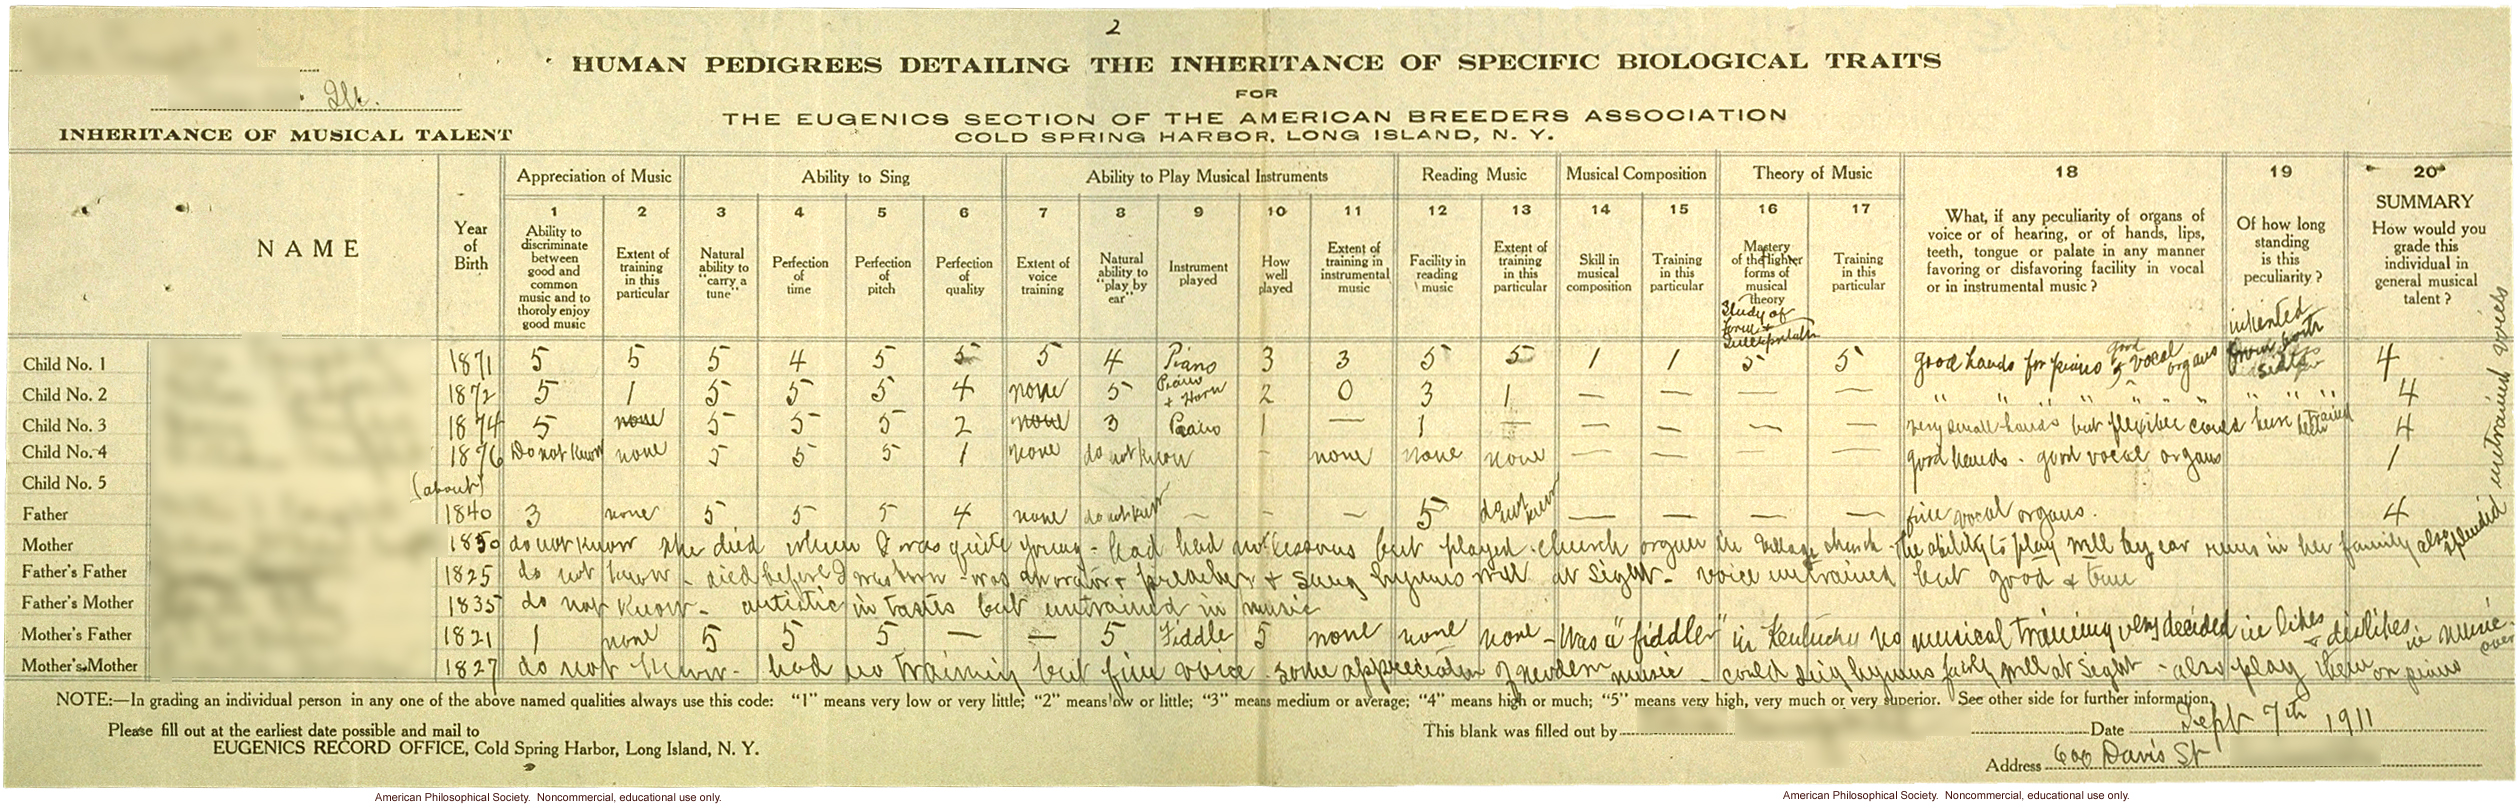 2
Ill.
HUMAN PEDIGREES DETAILING THE INHERITANCE OF SPECIFIC BIOLOGICAL TRAITS
FOR
THE EUGENICS SECTION OF THE AMERICAN BREEDERS ASSOCIATION
COLD SPRING HARBOR, LONG ISLAND, N. Y.
INHERITANCE OF MUSICAL TALENT
NAME
Year of Birth
Appreciation of Music
1 Ability to discriminate between good and common music and to thoroly enjoy good music
2 Extent of training in this particular
Ability to Sing
3 Natural ability to "carry a tune"
4 Perfection of time
5 Perfection of pitch
6 Perfection of quality
Ability to Play Musical Instruments
7 Extent of voice training
8 Natural ability to "play by ear"
9 Instrument played
10 How well played
11 Extent of training in instrumental music
Reading Music
12 Facility in reading music
13 Extent of training in this particular
Musical Composition
14 Skill in musical composition
15 Training in this particular
Theory of Music
16 Mastery of the higher forms of musical theory
Study of form +
17 Training in this particular
18 What, if any peculiarity of organs of voice or of hearing, or of hands, lips, teeth, tongue or palate in any manner favoring or disfavoring facility in vocal or in instrumental music?
19 Of how long standing is this peculiarity?
20 SUMMARY How would you grade this individual in general musical talent?
Child No. 1 1871 5 5 5 4 5 5 5 4 Piano 3 3 5 5 1 1 5 5 good hands for piano good vocal organs inherited from both sides 4
Child No. 2 1872 5 1 5 5 5 4 none 5 Piano + Horn 2 0 3 1 — — — — " " " " " " " " " 4
Child No. 3 1874 5 none 5 5 5 2 none 3 Piano 1 — 1 — — — — — very small hands but flexible been trained 4
Child No. 4 1876 Do not know none 5 5 5 1 none do not know - none none none — — — — good hands - good vocal organs 1
Child No. 5
Father (about) 1840 3 none 5 5 5 4 none do not know — - - 5 do not know — — — — fine vocal organs. 4
Mother 1850 do not know she died when I was quite young - had had no lessons but played church organ in village church - the ability to play well by ear runs in her family also splendid untrained voices
Father's Father 1825 do not know - died before I was born - was an orator + preacher + sung hymns well at sight - voice untrained but good + true
Father's Mother 1835 do not know - artistic in tastes but untrained in music
Mother's Father 1821 1 none 5 5 5 — — 5 Fiddle 5 none none none - Was a "fiddler" in Kentucky no musical training very decided in likes + dislikes in music
Mother's Mother 1827 do not know - had no training but fine voice - some appreciation of modern music - could sing hymns fairly well at sight - also play them on piano
NOTE:—In grading an individual person in any one of the above named qualities always use this code: "1" means very low or very little; "2" means low or little; "3" means medium or average; "4" means high or much; "5" means very high, very much or very superior. See other side for further information.
Please fill out at the earliest date possible and mail to
EUGENICS RECORD OFFICE, Cold Spring Harbor, Long Island, N. Y.
This blank was filled out by
Date Sept 7th 1911
Address 600 Davis St
American Philosophical Society. Noncommercial, educational use only.
American Philosophical Society. Noncommercial, educational use only.